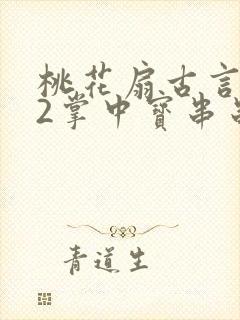 桃花扇古言
2掌中寳串
青道生